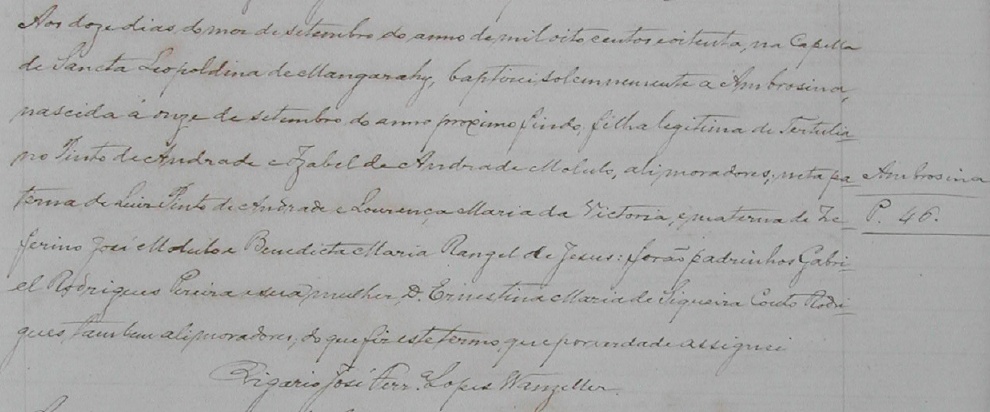 Aos doze dias do mes de setembro do anno de mil oito centos e oitenta, na Capella
de Sancta Leopoldina de Mangarahy, baptizei solemnemente a Ambrosina,
nascida á onze de setembro do anno proximo findo, filha legitima de Tertulia-
no Pinto de Andrade e Izabel de Andrade Mululo, ali moradores; neta pa-
terna de Luiz Pinto de Andrade e Lourença Maria da Victoria, e materna de Ze-
ferino José Mululo e Benedicta Maria Rangel de Jesus: forão padrinhos Gabri-
el Rodrigues Pereira e sua mulher D. Ernestina Maria de Siqueira Couto Rodri-
gues, tambem ali moradores; do que fiz este termo, que por verdade assignei
Vigario José Ferr.ª Lopes Wanzeller.
Ambrosina
P. 46.